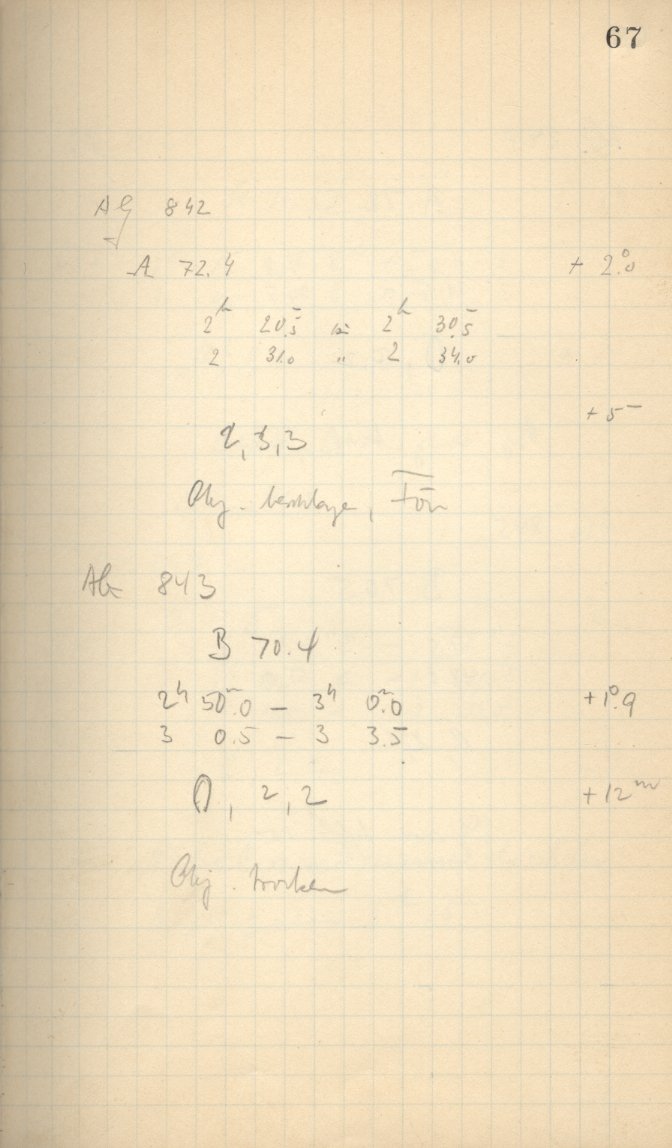 67
AG 842
A 72.4 + 2°.0
2h 20.5 bis 2h 30.5
2 31.0 " 2 34.0
+ 5m
2, 3, 3
Obj. beschlagen, Fön
AG 843
B 70.4
2h 50m.0 – 3h 0m.0 +1°.9
3 0.5 – 3 3.5
0, 2, 2 +12m
Obj. trocken